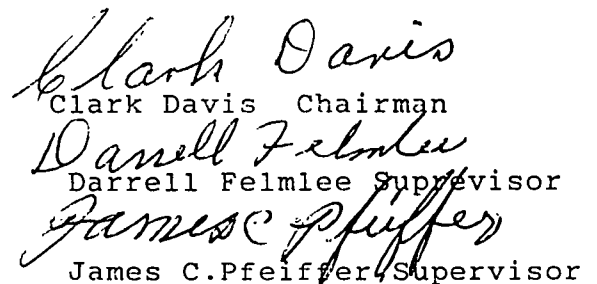 Clark Davis
Clark Davis Chairman
Darrell Felmlee
Darrell Felmlee Suprevisor
James C Pfeiffer
James C.Pfeiffer,Supervisor